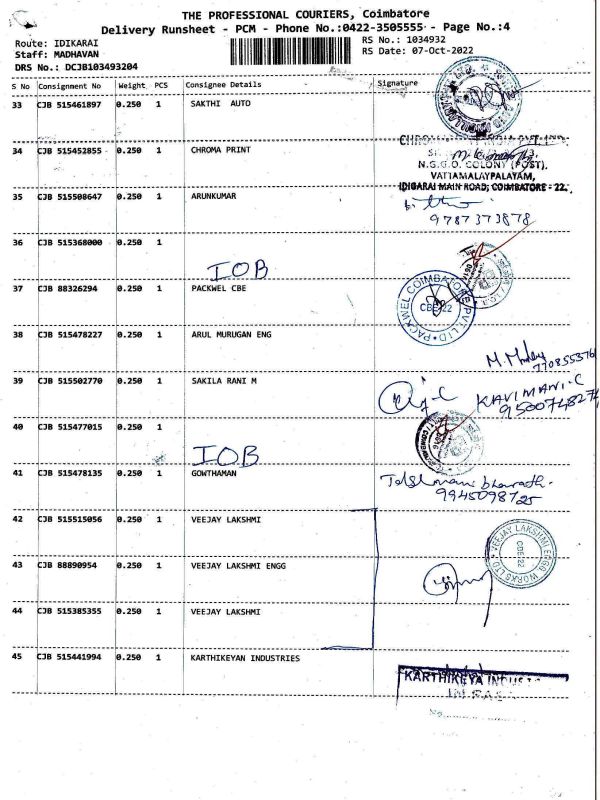 THE PROFESSIONAL COURIERS, Coimbatore
Delivery Runsheet - PCM - Phone No.:0422-3505555- - Page No.:4
Route: IDIKARAI
RS No.: 1034932
Staff: MADHAVAN
RS Date: 07-Oct-2022
DRS No.: DCJB103493204
S No Consignment No Weight PCS Consignee Details Signature
33 CJB 515461897 0.250 1 SAKTHI AUTO
34 CJB 515452855 0.250 1 CHROMA PRINT
N.G.G.O. COLONY (POST),
VATTAMALAYPALAYAM,
IDIGARAI MAIN ROAD, COIMBATORE - 22.
35 CJB 515508647 0.250 1 ARUNKUMAR
9787373878
36 CJB 515368000 0.250 1
IOB
37 CJB 88326294 0.250 1 PACKWEL CBE
PACKWEL COIMBATORE PVT LTD
CBE-22
38 CJB 515478227 0.250 1 ARUL MURUGAN ENG
39 CJB 515502770 0.250 1 SAKILA RANI M
KAVIMANI-C
40 CJB 515477015 0.250 1
IOB
41 CJB 515478135 0.250 1 GOWTHAMAN
9945098725
42 CJB 515515056 0.250 1 VEEJAY LAKSHMI
VEEJAY LAKSHMI ENGG WORKS LTD
CBE-22
43 CJB 88890954 0.250 1 VEEJAY LAKSHMI ENGG
44 CJB 515385355 0.250 1 VEEJAY LAKSHMI
45 CJB 515441994 0.250 1 KARTHIKEYAN INDUSTRIES
KARTHIKEYA